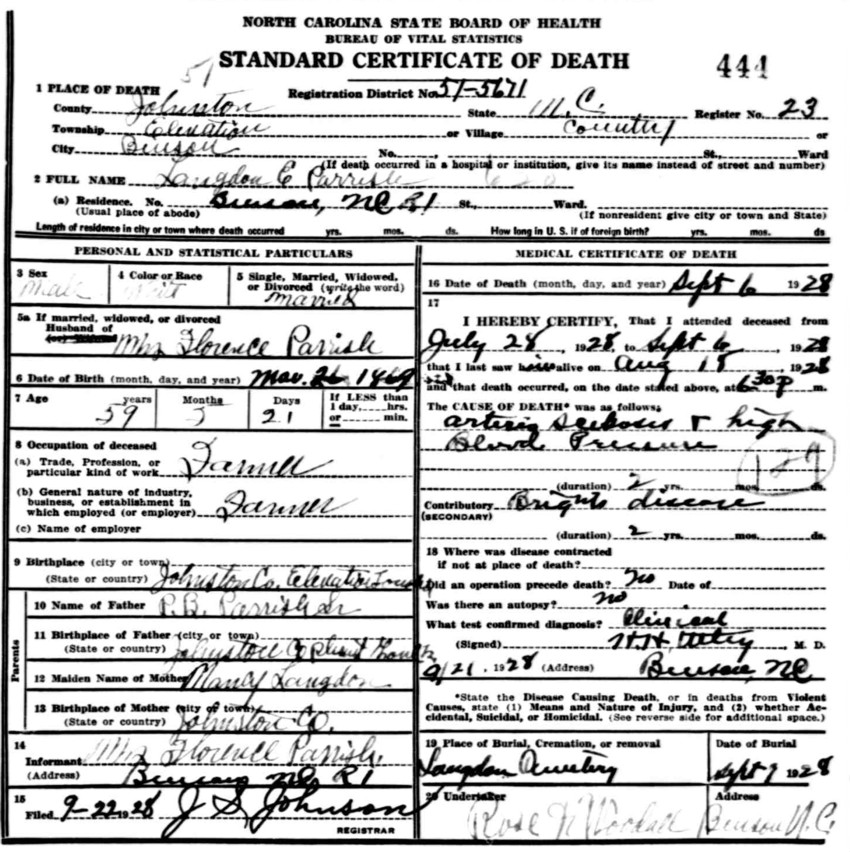 NORTH CAROLINA STATE BOARD OF HEALTH
BUREAU OF VITAL STATISTICS
STANDARD CERTIFICATE OF DEATH
444
51
1 PLACE OF DEATH
Registration District No. 51-5671
County Johnston State N.C. Register No. 23
Township Elevation or Village Country or
City Benson No. St., Ward
(If death occurred in a hospital or institution, give its name instead of street and number)
2 FULL NAME Langdon E Parrish
(a) Residence. No. Benson, NC R1 St., Ward.
(Usual place of abode) (If nonresident give city or town and State)
Length of residence in city or town where death occurred yrs. mos. ds. How long in U. S. if of foreign birth? yrs. mos. ds.
PERSONAL AND STATISTICAL PARTICULARS
3 Sex 4 Color or Race 5 Single, Married, Widowed, or Divorced (write the word)
Male Whit married
5a If married, widowed, or divorced
Husband of
(or) Widow
Mrs Florence Parrish
6 Date of Birth (month, day, and year) Mar. 26 1869
7 Age years Months Days If LESS than 1 day, hrs. or min.
59 5 21
8 Occupation of deceased
(a) Trade, Profession, or particular kind of work Farmer
(b) General nature of industry, business, or establishment in which employed (or employer) Farmer
(c) Name of employer
9 Birthplace (city or town)
(State or country) Johnston Co. Elevation
10 Name of Father P.B. Parrish Sr
Parents
11 Birthplace of Father (city or town)
(State or country) Johnston Co
12 Maiden Name of Mother Nancy Langdon
13 Birthplace of Mother (city of town)
(State or country) Johnston Co.
14
Informant Mrs Florence Parrish
(Address) Benson NC. R1
15
Filed 9-22 1928 J S Johnson
REGISTRAR
MEDICAL CERTIFICATE OF DEATH
16 Date of Death (month, day, and year) Sept 6 1928
17
I HEREBY CERTIFY, That I attended deceased from
July 28, 1928, to Sept 6 1928
that I last saw him alive on Aug 18 1928
and that death occurred, on the date stated above, at 6 30 P m.
The CAUSE OF DEATH* was as follows:
arterio Sclerosis & high
Blood Pressure
129
(duration) 2 yrs. mos. ds.
Contributory Brights disease
(SECONDARY)
(duration) 2 yrs. mos. ds.
18 Where was disease contracted
if not at place of death?
Did an operation precede death? no Date of
Was there an autopsy? no
What test confirmed diagnosis? Clinical
(Signed) M. D.
9/21, 1928 (Address) Benson, NC
*State the Disease Causing Death, or in deaths from Violent Causes, state (1) Means and Nature of Injury, and (2) whether Accidental, Suicidal, or Homicidal. (See reverse side for additional space.)
19 Place of Burial, Cremation, or removal Date of Burial
Langdon Cemetery Sept 7 1928
20 Undertaker Address
Rose N Woodall Benson N.C.